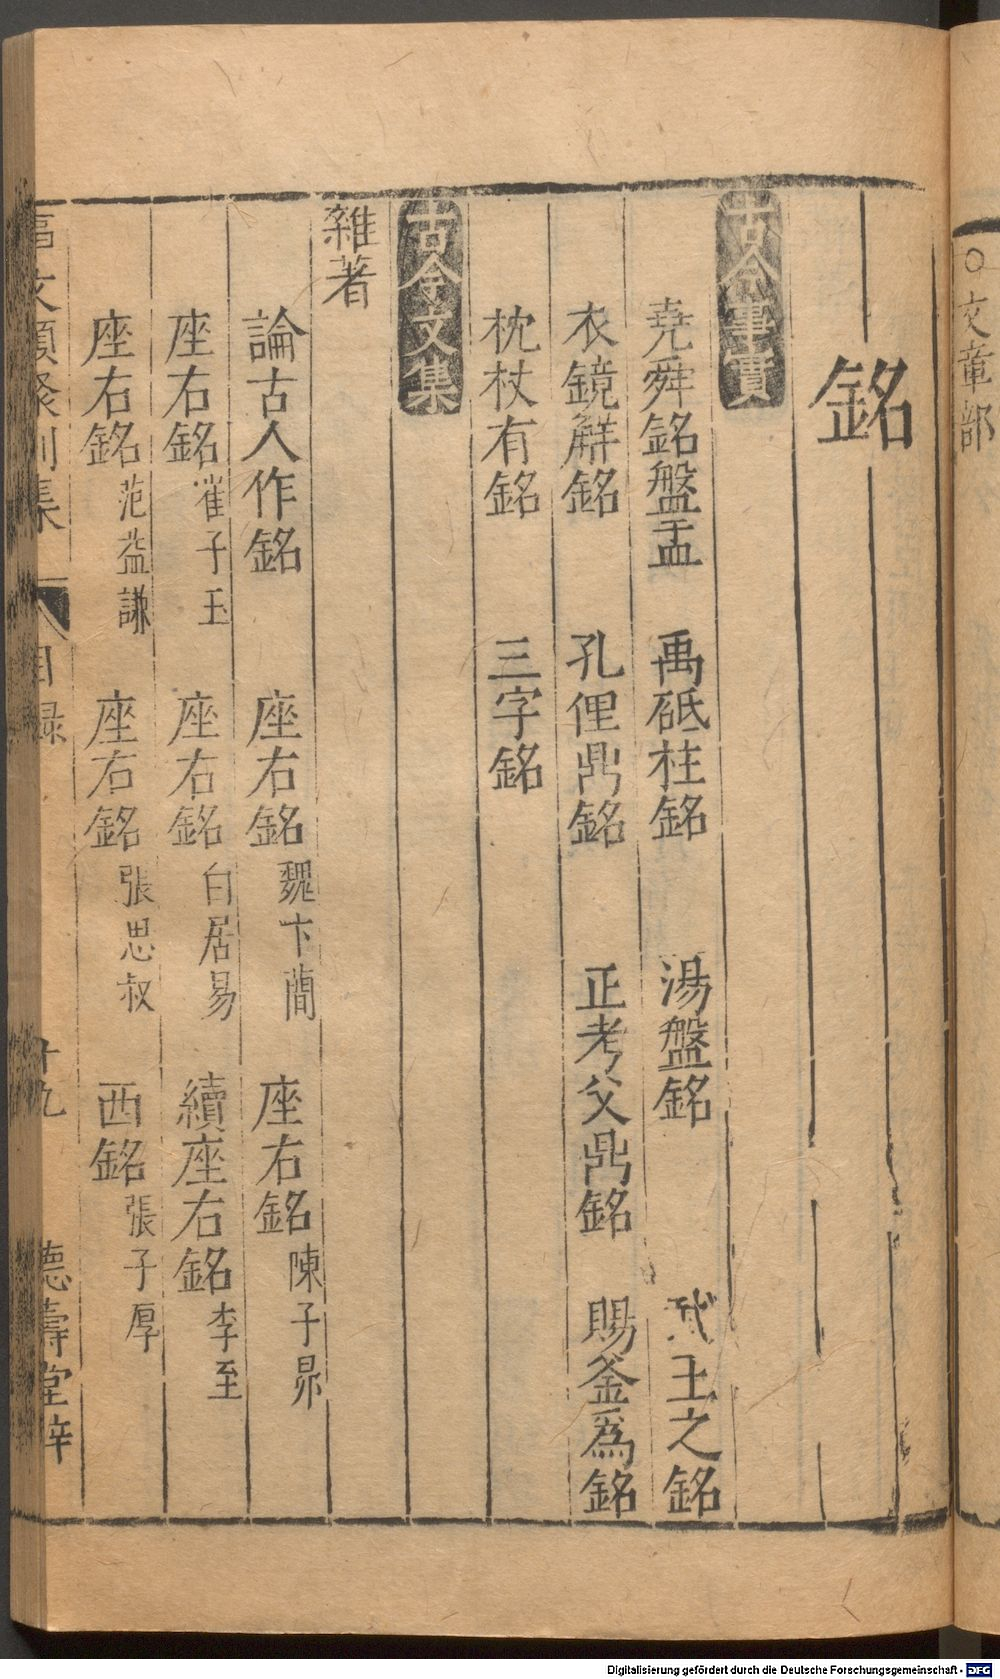 ○文章部
銘
古今事實
堯舜銘盤盂　禹砥柱銘　湯盤銘　武王之銘
衣鏡觧銘　孔俚鼎銘　正考父鼎銘　賜釜爲銘
枕杖有銘　三字銘
古今文集
雜著
論古人作銘　座右銘魏卞蘭　座右銘陳子昂
座右銘崔子玉　座右銘白居易　續座右銘李至
座右銘范益謙　座右銘張思叔　西銘張子厚
文類聚別集　目錄　十九　德壽堂梓
Digitalisierung gefördert durch die Deutsche Forschungsgemeinschaft - DFG